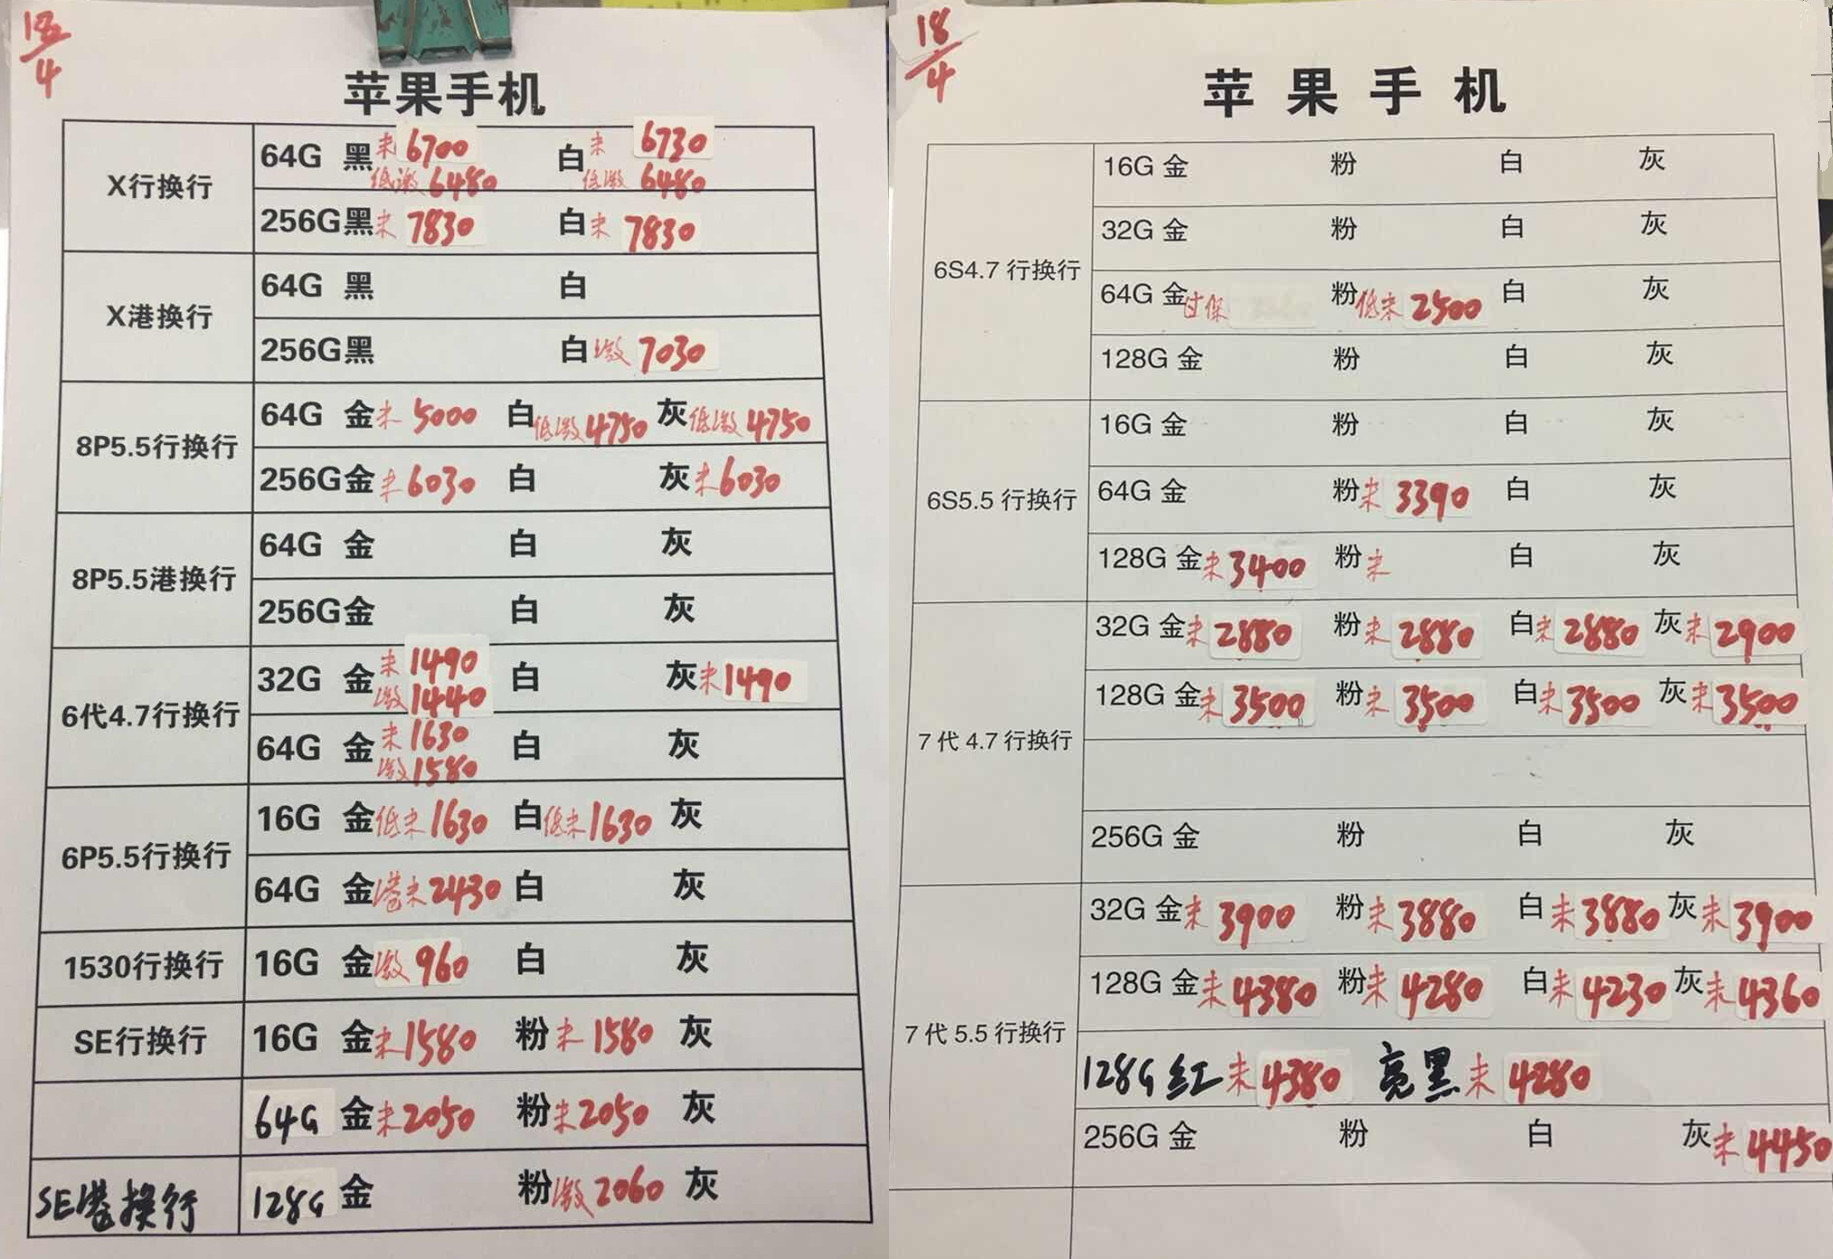 18/4
苹果手机
X行换行
64G 黑 未 6700 白 未 6730
低激 6480 低激 6480
256G 黑 未 7830 白 未 7830
X港换行
64G 黑 白
256G 黑 白 激 7030
8P5.5行换行
64G 金 未 5000 白 低激 4750 灰 低激 4750
256G 金 未 6030 白 灰 未 6030
8P5.5港换行
64G 金 白 灰
256G 金 白 灰
6代4.7行换行
32G 金 未 1490 白 灰 未 1490
激 1440
64G 金 未 1630 白 灰
激 1580
6P5.5行换行
16G 金 低未 1630 白 低未 1630 灰
64G 金 港未 2430 白 灰
1530行换行
16G 金 激 960 白 灰
SE行换行
16G 金 未 1580 粉 未 1580 灰
64G 金 未 2050 粉 未 2050 灰
SE港换行
128G 金 粉 激 2060 灰
18/4
苹果手机
6S4.7行换行
16G 金 粉 白 灰
32G 金 粉 白 灰
64G 金 过保 粉 低未 2500 白 灰
128G 金 粉 白 灰
6S5.5行换行
16G 金 粉 白 灰
64G 金 粉 未 3390 白 灰
128G 金 未 3400 粉 未 白 灰
7代4.7行换行
32G 金 未 2880 粉 未 2880 白 未 2880 灰 未 2900
128G 金 未 3500 粉 未 3500 白 未 3500 灰 未 3500
256G 金 粉 白 灰
7代5.5行换行
32G 金 未 3900 粉 未 3880 白 未 3880 灰 未 3900
128G 金 未 4380 粉 未 4280 白 未 4230 灰 未 4360
128G 红 未 4380 亮黑 未 4280
256G 金 粉 白 灰 未 4450